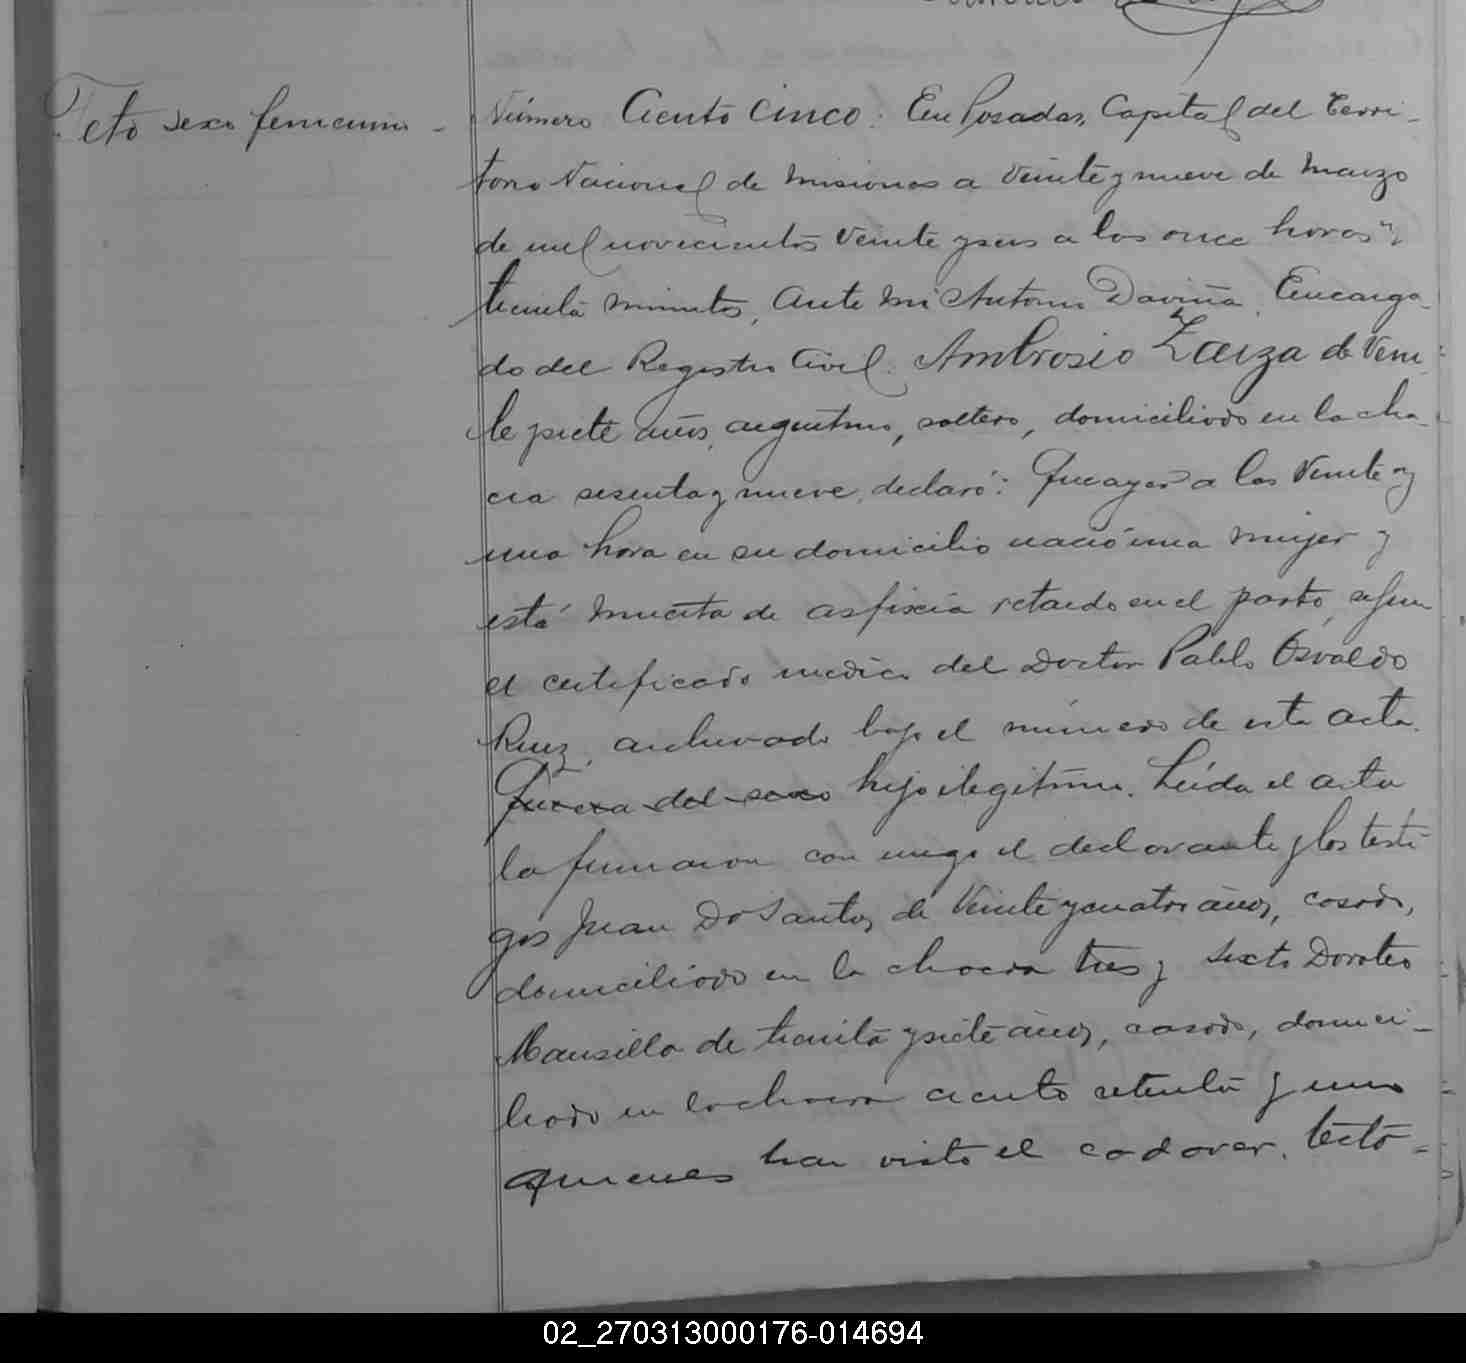 Feto sexo femenino -
Número Ciento cinco: En Posadas, Capital del Terri-
torio Nacional de Misiones a veinte y nueve de Marzo
de mil novecientos veinte y seis a las once horas y
treinta minutos, ante mi Antonio Daviña, Encarga-
do del Registro Civil: Ambrosio Zarza de Vein-
te y siete años, argentino, soltero, domiciliado en la cha-
cra sesenta y nueve, declaró: Que ayer a las veinte y
una hora en su domicilio nació una mujer y
está muerta de asfixia retardo en el parto, segun
el certificado medico del Doctor Pablo Osvaldo
Ruiz, archivado bajo el número de esta acta.
Que era del sexo hijo ilegitimo. Leída el acta
la firmaron con migo el declarante y los testi-
gos Juan Do Santos, de veinte y cuatro años, casado,
domiciliado en la chacra tres y Sixto Doroteo
Mansilla de treinta y siete años, casado, domici-
liado en la chacra ciento setenta y uno
quienes han visto el cadaver. testo-
02_270313000176-014694